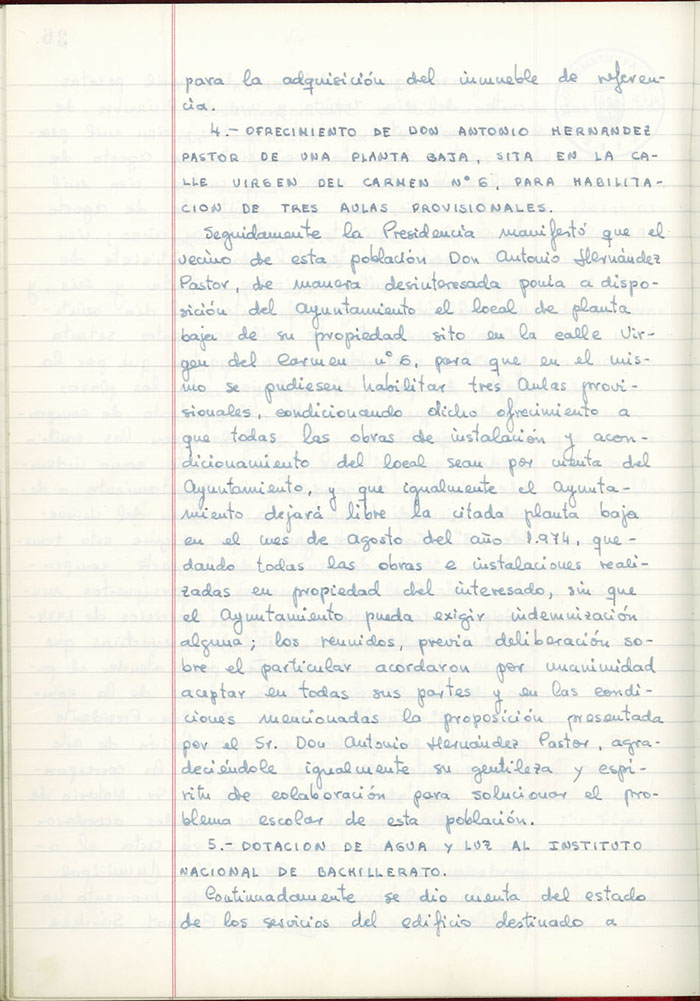 para la adquisición del inmueble de referen-
cia.
4.- OFRECIMIENTO DE DON ANTONIO HERNANDEZ
PASTOR DE UNA PLANTA BAJA, SITA EN LA CA-
LLE VIRGEN DEL CARMEN Nº 6, PARA HABILITA-
CION DE TRES AULAS PROVISIONALES.
Seguidamente la Presidencia manifestó que el
vecino de esta población Don Antonio Hernández
Pastor, de manera desinteresada ponía a dispo-
sición del Ayuntamiento el local de planta
baja de su propiedad sito en la calle Vir-
gen del Carmen nº 6, para que en el mis-
mo se pudiesen habilitar tres Aulas provi-
sionales, condicionando dicho ofrecimiento a
que todas las obras de instalación y acon-
dicionamiento del local sean por cuenta del
Ayuntamiento, y que igualmente el Ayunta-
miento dejará libre la citada planta baja
en el mes de agosto del año 1.974, que-
dando todas las obras e instalaciones reali-
zadas en propiedad del interesado, sin que
el Ayuntamiento pueda exigir indemnización
alguna; los reunidos, previa deliberación so-
bre el particular acordaron por unanimidad
aceptar en todas sus partes y en las condi-
ciones mencionadas la proposición presentada
por el Sr. Don Antonio Hernández Pastor, agra-
deciéndole igualmente su gentileza y espí-
ritu de colaboración para solucionar el pro-
blema escolar de esta población.
5.- DOTACION DE AGUA Y LUZ AL INSTITUTO
NACIONAL DE BACHILLERATO.
Continuadamente se dio cuenta del estado
de los servicios del edificio destinado a